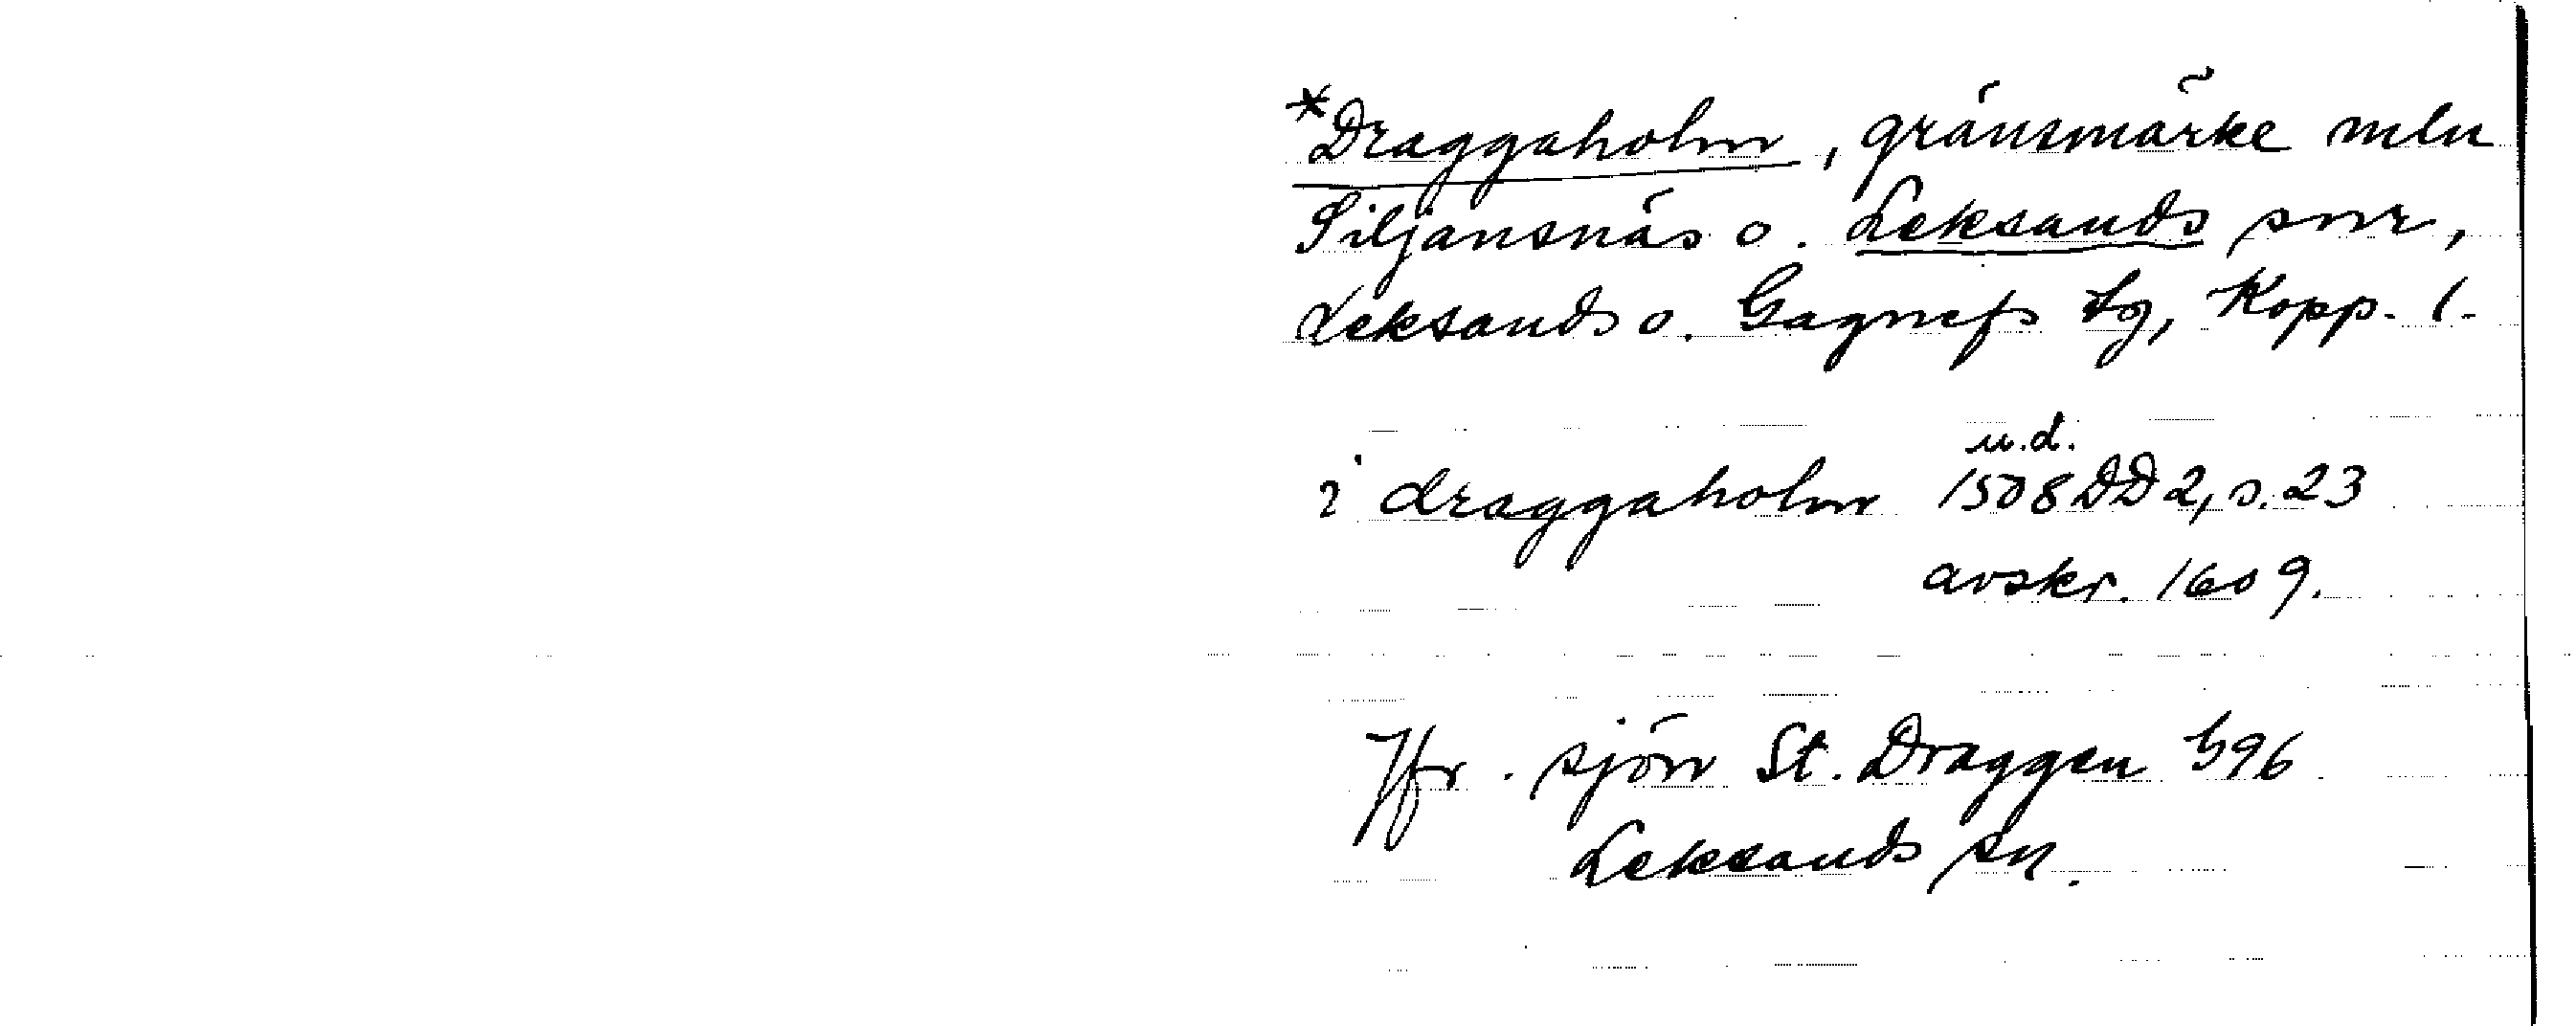 *Draggaholm, gränsmärke mln
Siljansnäs o. Leksands snr,
Leksands o. Gagnefs tg, Kopp. l.
i draggaholm 1508 u.d. DD 2, s. 23
avskr. 1609.
Jfr. sjön St. Draggen b96
Leksands sn.